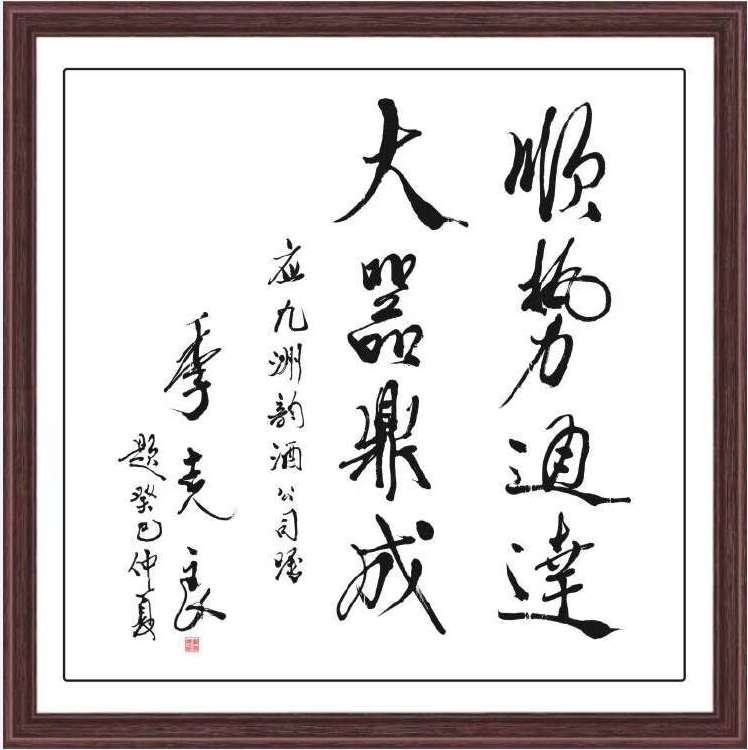 順势通達
大器鼎成
应九洲韵酒公司嘱
季克良
题癸巳仲夏